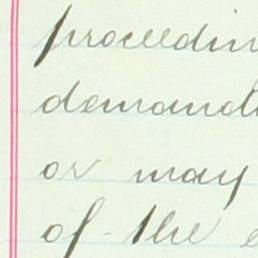 proceedin
demand
or may
of the